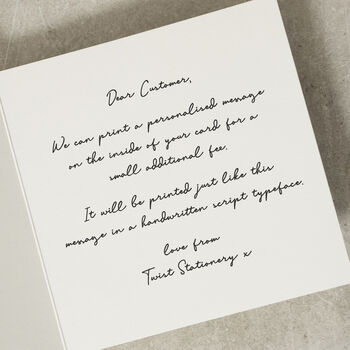 Dear Customer,
We can print a personalised message
on the inside of your card for a
small additional fee.
It will be printed just like this
message in a handwritten script typeface.
love from
Twist Stationery x